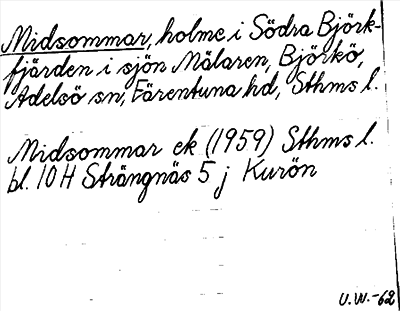 Midsommar, holme i Södra Björk-
fjärden i sjön Mälaren, Björkö,
Adelsö sn, Färentuna hd, Sthms l.
Midsommar ek (1959) Sthms l.
bl. 10H Strängnäs 5 j Kurön
U.W.-62